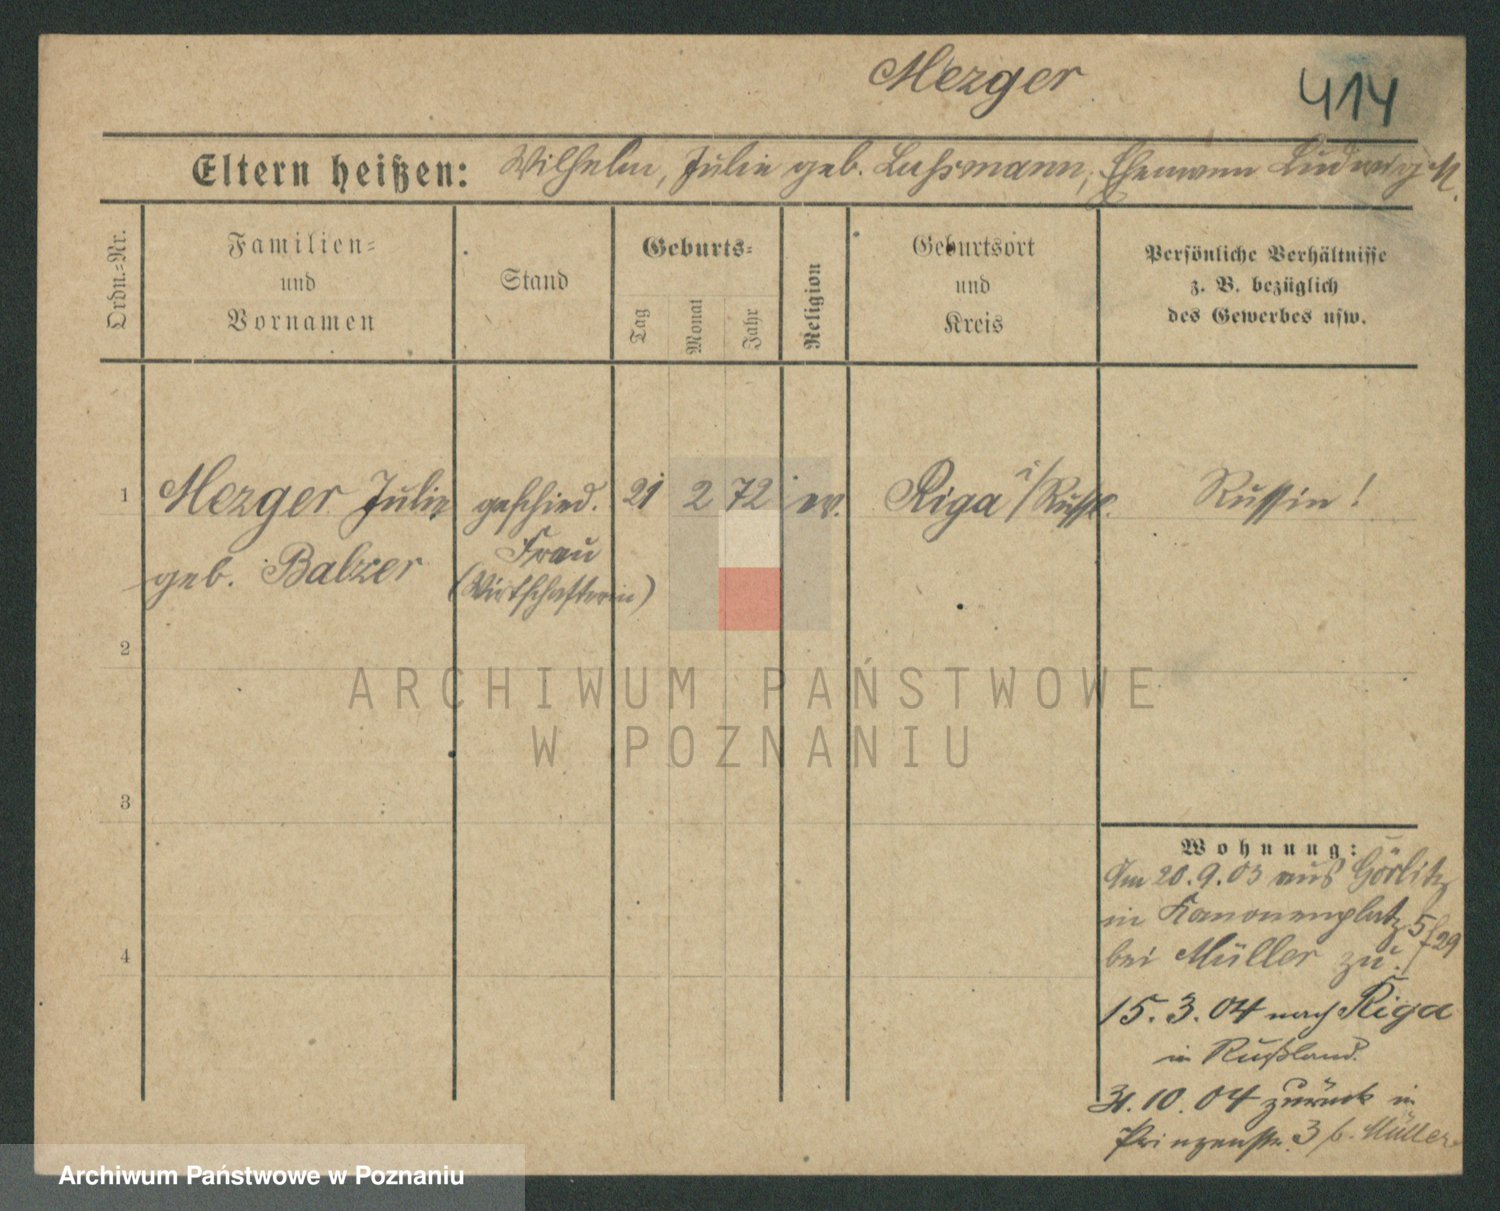 Mezger
414
Eltern heißen: Wilhelm, Julie geb. Lussmann, Ehemann Ludwig M.
Ordn.=Nr.
Familien=
und
Vornamen
Stand
Geburts=
Tag
Monat
Jahr
Religion
Geburtsort
und
Kreis
Persönliche Verhältnisse
z. B. bezüglich
des Gewerbes usw.
1 Mezger Julie geschied. 21 2 72 ev. Riga i/Russl. Russin!
geb. Balzer Frau
(Wirtschafterin)
2
ARCHIWUM PAŃSTWOWE
W POZNANIU
3
4
Wohnung:
Am 20.9.03 aus Görlitz
in Kanonenplatz 5/29
bei Müller zu.
15.3.04 nach Riga
in Rußland.
31.10.04 zurück in
Prinzenstr. 3 b. Müller
Archiwum Państwowe w Poznaniu